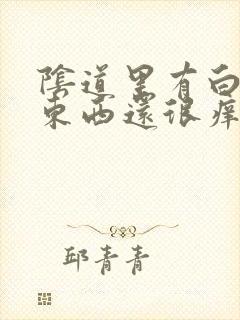 陰道里有白
東西還很癢
邱青青